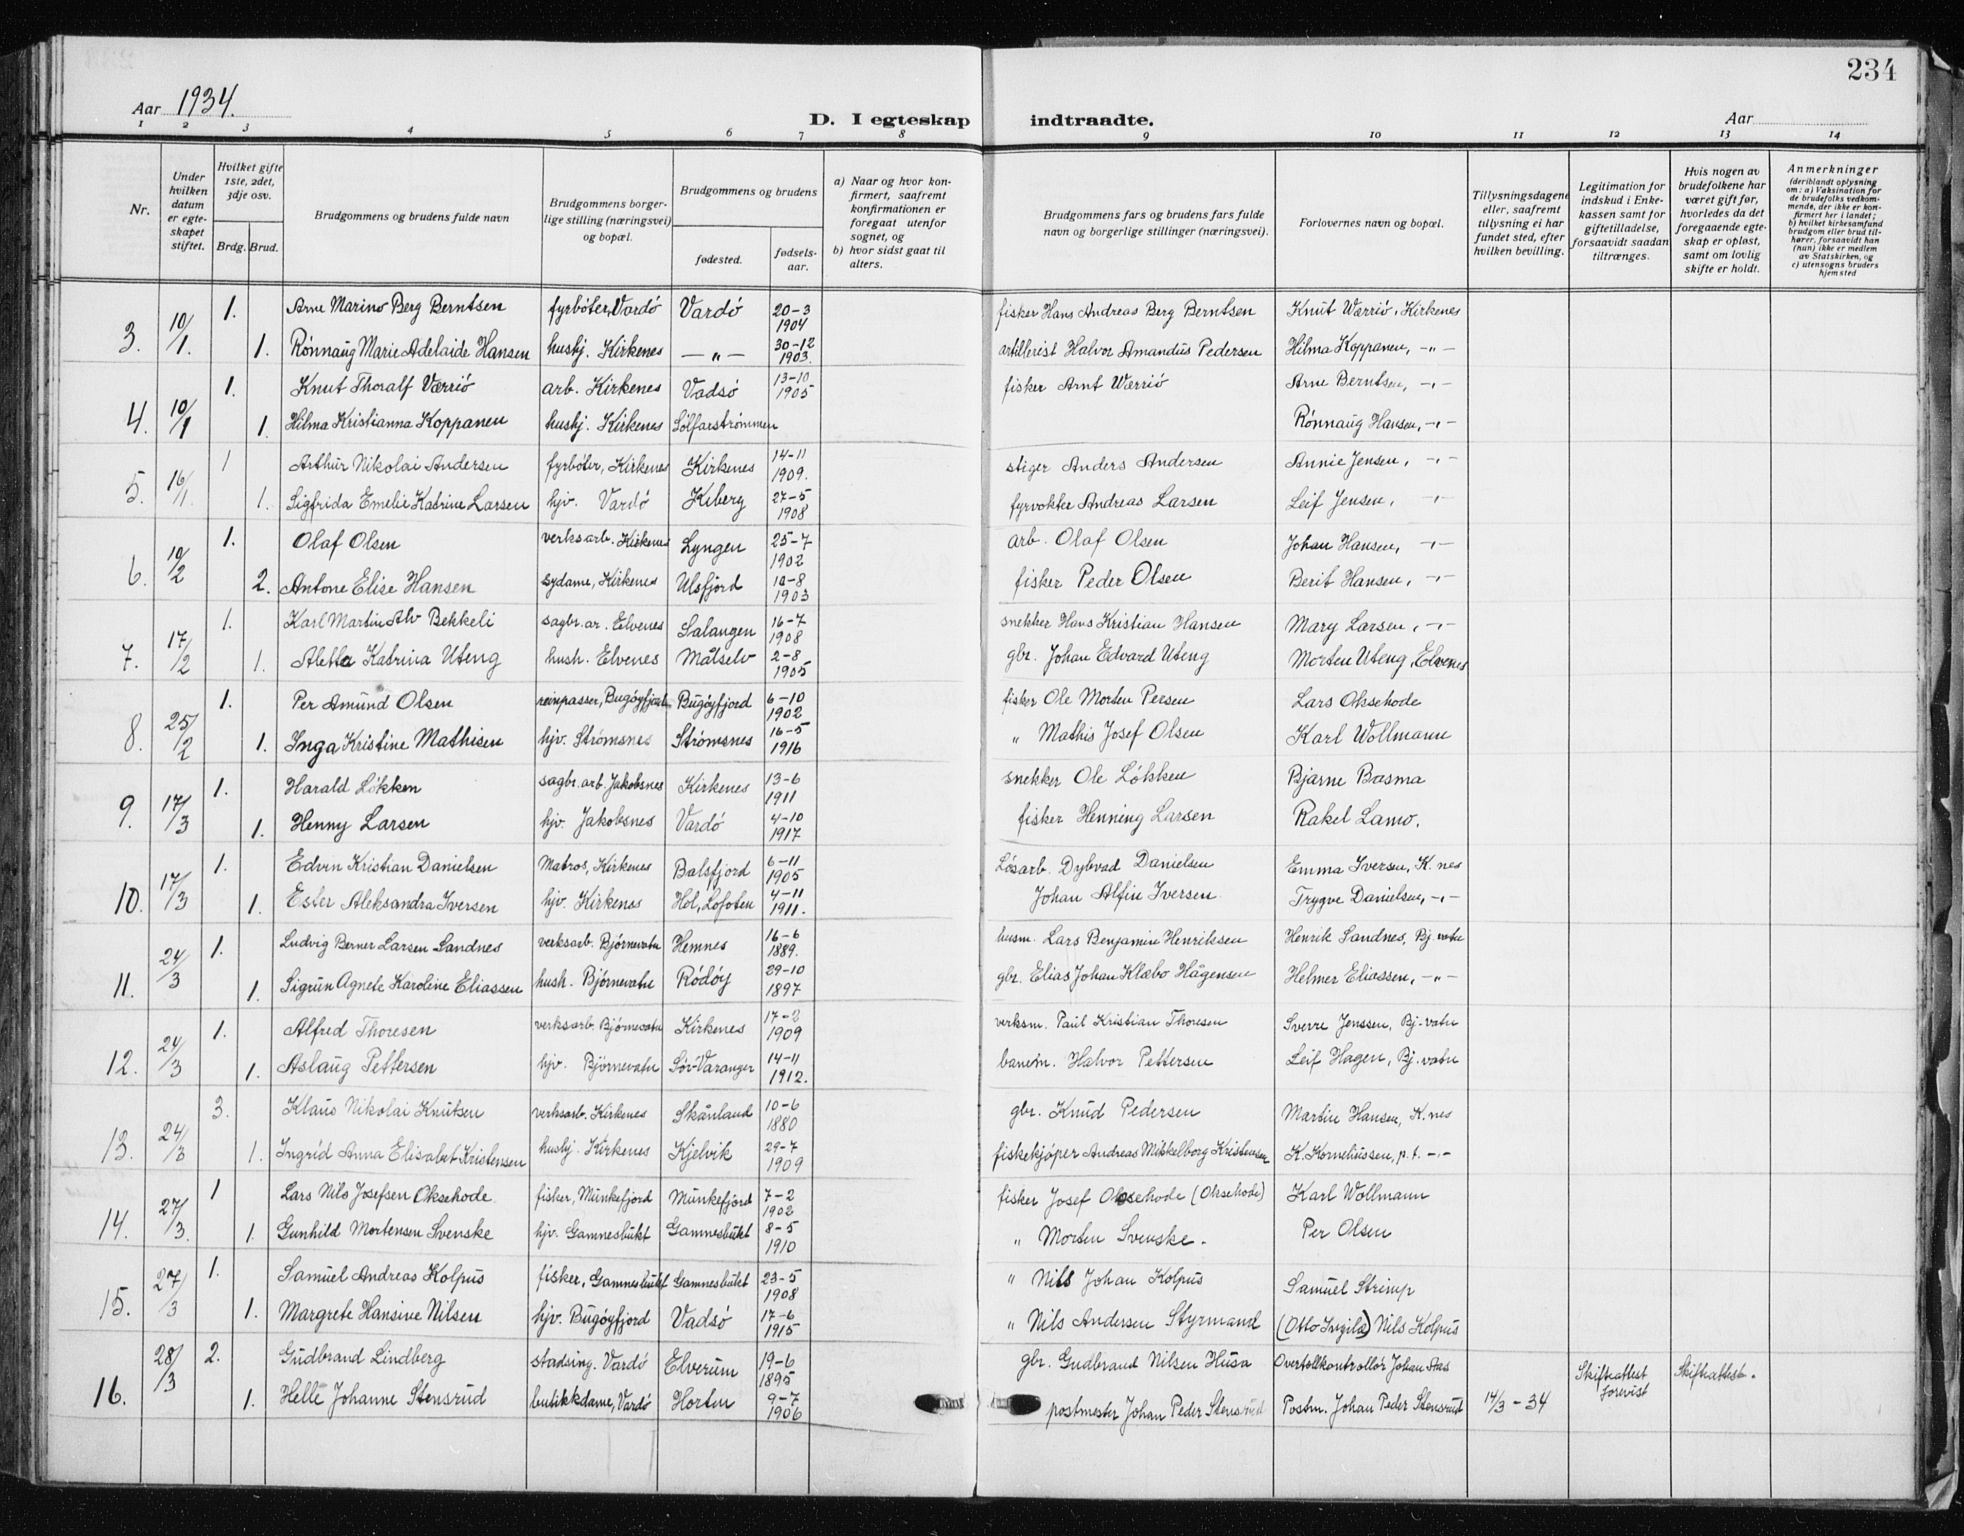 234
Aar 1934. D. I egteskap indtraadte. Aar
1 2 3 4 5 6 7 8 9 10 11 12 13 14
Nr.
Under hvilken datum er egteskapet stiftet.
Hvilket gifte 1ste, 2det, 3dje osv.
Brdg. Brud.
Brudgommens og brudens fulde navn
Brudgommens borgerlige stilling (næringsvei) og bopæl.
Brudgommens og brudens
fødested. fødselsaar.
a) Naar og hvor konfirmert, saafremt konfirmationen er foregaat utenfor sognet, og
b) hvor sidst gaat til alters.
Brudgommens fars og brudens fars fulde navn og borgerlige stillinger (næringsvei).
Forlovernes navn og bopæl.
Tillysningsdagene eller, saafremt tillysning ei har fundet sted, efter hvilken bevilling.
Legitimation for indskud i Enkekassen samt for giftetilladelse, forsaavidt saadan tiltrænges.
Hvis nogen av brudefolkene har været gift før, hvorledes da det foregaaende egteskap er opløst, samt om lovlig skifte er holdt.
Anmerkninger (deriblandt oplysning om: a) Vaksination for de brudefolks vedkommende, der ikke er konfirmert her i landet; b) hvilket kirkesamfund brudgom eller brud tilhører, forsaavidt han (hun) ikke er medlem av Statskirken, og c) utensogns bruders hjemsted
3. 10/1. 1. Arne Marino Berg Berntsen fyrbøter, Vardø Vardø 20-3 1904 fisker Hans Andreas Berg Berntsen Knut Wærriö, Kirkenes
1. Rønnaug Marie Adelaide Hansen hushj. Kirkenes —"— 30-12 1903. artillerist Halvor Amandus Pedersen Hilma Koppanen, -"-
4. 10/1 1. Knut Thoralf Værriö arb. Kirkenes Vadsø 13-10 1905 fisker Arnt Wærriö Arne Berntsen, -"-
1. Hilma Kristianna Koppanen hushj. Kirkenes Sølfarstrømmen Rønnaug Hansen, -"-
5. 16/1. 1 Arthur Nikolai Andersen fyrbøter, Kirkenes Kirkenes 14-11 1909. stiger Anders Andersen Annie Jensen, -"-
1. Sigfrida Emelie Katrine Larsen hjv. Vardø Kiberg 27-5 1908 fyrvokter Andreas Larsen Leif Jensen, -"-
6. 10/2 1. Olaf Olsen verksarb. Kirkenes Lyngen 25-7 1902 arb. Olaf Olsen Johan Hansen, -"-
2. Antone Elise Hansen sydame, Kirkenes Ulsfjord 10-8 1903 fisker Peder Olsen Berit Hansen, -"-
7. 17/2 1. Karl Martin Alv Bekkeli sagbr. ar. Elvenes Salangen 16-7 1908 snekker Hans Kristian Hansen Mary Larsen, -"-
1. Aletta Katrina Uteng hush. Elvenes Målselv 2-8 1905 gbr. Johan Edvard Uteng Morten Uteng, Elvenes
8. 25/2 1. Per Amund Olsen reinpasser, Bugøyfjord Bugøyfjord 6-10 1902 fisker Ole Morten Persen Lars Oksehode
1. Inga Kristine Mathisen hjv. Strømsnes Strømsnes 16-5 1916 " Mathis Josef Olsen Karl Wollmann
9. 17/3 1. Harald Løkken sagbr. arb. Jakobsnes Kirkenes 13-6 1911 snekker Ole Løkken Bjarne Basma
1. Henny Larsen hjv. Jakobsnes Vardø 4-10 1917 fisker Henning Larsen Rakel Lamo.
10. 17/3 1. Edvin Kristian Danielsen Matros, Kirkenes Balsfjord 6-11 1905 Løsarb. Dybvad Danielsen Emma Iversen, K.nes
1. Ester Aleksandra Iversen hjv. Kirkenes Hol, Lofoten 4-11 1911. Johan Alfin Iversen Trygve Danielsen, -"-
11. 24/3 1. Ludvig Berner Larsen Sandnes verksarb. Bjørnevatn Hemnes 16-6 1889. husm. Lars Benjamin Henriksen Henrik Sandnes, Bj.vatn
1. Sigrun Agnete Karoline Eliassen hush. Bjørnevatn Rödöy 29-10 1897 gbr. Elias Johan Klæbo Hågensen Helmer Eliassen, -"-
12. 24/3 1. Alfred Thoresen verksarb. Bjørnevatn Kirkenes 17-2 1909 verksm. Paul Kristian Thoresen Sverre Jenssen, Bj-vatn
1. Aslaug Pettersen hjv. Björnevatn Sør-Varanger 14-11 1912. banem. Halvor Pettersen Leif Hagen, Bj.vatn
13. 24/3 3. Klaus Nikolai Knutsen verksarb. Kirkenes Skånland 10-6 1880 gbr. Knud Pedersen Martin Hansen, K.nes
1. Ingrid Anna Elisabet Kristensen hushj. Kirkenes Kjelvik 29-7 1909 fiskekjøper Andreas Mikkelborg Kristensen K. Korneliussen, p.t. -"-
14. 27/3. 1 Lars Nils Josefsen Oksehode fisker, Munkefjord Munkefjord 7-2 1902 fisker Josef Oksehode (Oksehode) Karl Wollmann
1. Gunhild Mortensen Svenske hjv. Gamnesbukt Gamnesbukt 8-5 1910 " Morten Svenske. Per Olsen
15. 27/3 1. Samuel Andreas Kolpus fisker, Gamnesbukt Gamnesbukt 23-5 1908 " Nils Johan Kolpus Samuel Strimp
1. Margrete Hansine Nilsen hjv. Bugøyfjord Vadsø 17-6 1915 " Nils Andersen Styrmand (Otto Ingilæ) Nils Kolpus
16. 28/3 2. Gudbrand Lindberg stadsing. Vardø Elverum 19-6 1895 gbr. Gudbrand Nilsen Husa Overtollkontrollør Johan Aas Skifteattest forevist Skifteattest.
1. Helle Johanne Stensrud butikkdame, Vardø Horten 9-7 1906 postmester Johan Peder Stensrud Postm. Johan Peder Stensrud 17/3-34